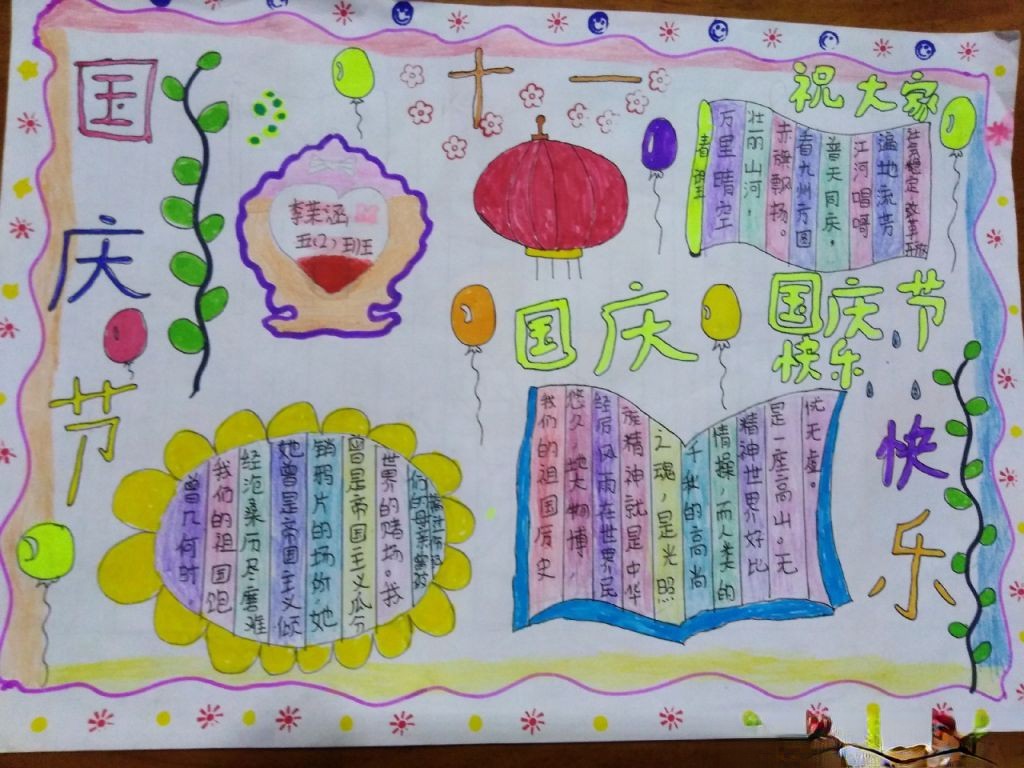 国庆节
十一
祝大家
国庆节
快乐
李茉涵
五(2)班
春望
万里晴空
壮丽山河。
赤旗飘扬。
看九州方圆
普天同庆,
江河唱
遍地流芳
社会稳定改革开放
国庆
快乐
曾几何时,
我们的祖国跑
经沧桑历尽磨难
她曾是帝国主义倾
销鸦片的场所。她
曾是帝国主义瓜分
世界的赌场。我
们的母亲蒙
我们的祖国历史
悠久,地大物博,
经历风雨在世界民
族精神就是中华
之魂,是光照
千我的高尚
情操,而人类的
精神世界好比
是一座高山。无
忧无虑。